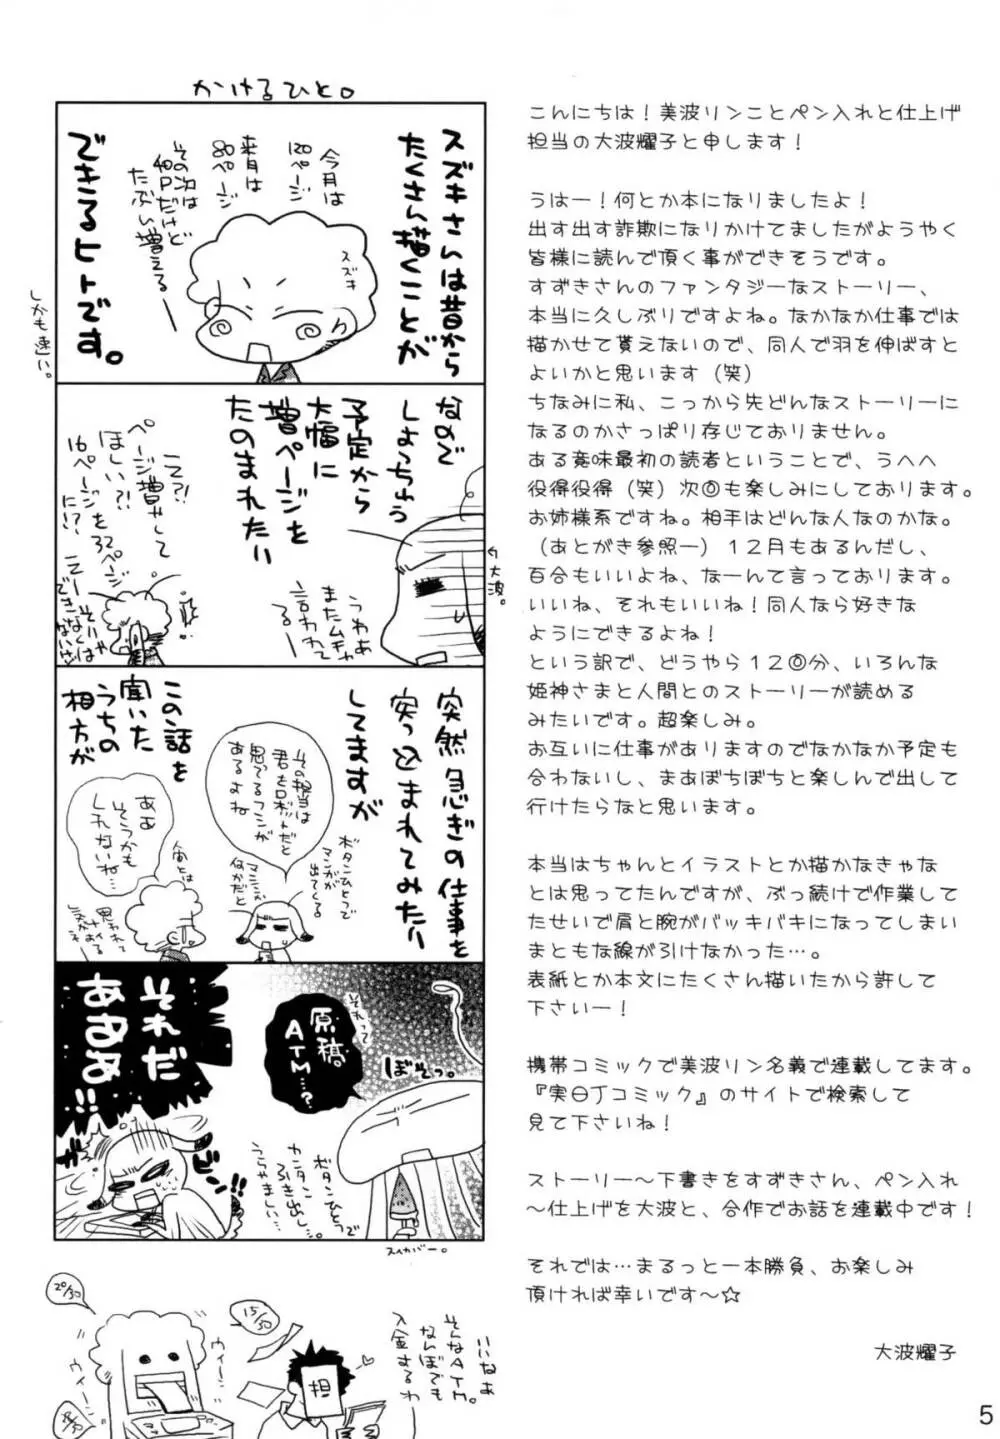 かけるひと。
スズキさんは昔から
たくさん描くことが
できるヒトです。
しかも速い。
今月は
120ページ
来月は
80ページ
その次は
40Pだけど
たぶん増える
スズキ
なので
しょっちゅう
予定から
大幅に
増ページを
たのまれたり
大波。
うわぁ
またムチャ
言われて
る
ええ?!
ページ増やして
ほしい?!
16ページを32ページ
に!?
突然急ぎの仕事を
突っ込まれてみたり
してますが
この話を
聞いた
うちの
相方が
その担当は
君をロボットだと
思ってるフシが
あるよね
ボタンひとつで
マンガが
出てくる
ああ
そうかも
しれないね…
それって
原稿
ATM…?
ぼそっ。
それだ
あああ!!
ビーン!!
ボタンひとつで
カンタン
引き出し…
うらやましい…
スイカバー。
20/50
15/50
ウィーン
ウィーン
担
いいなぁ
そんなATM。
なんぼでも
入金するわ
こんにちは！美波リンことペン入れと仕上げ
担当の大波耀子と申します！
うはー！何とか本になりましたよ！
出す出す詐欺になりかけてましたがようやく
皆様に読んで頂く事ができそうです。
すずきさんのファンタジーなストーリー、
本当に久しぶりですよね。なかなか仕事では
描かせて貰えないので、同人で羽を伸ばすと
よいかと思います（笑）
ちなみに私、こっから先どんなストーリーに
なるのかさっぱり存じておりません。
ある意味最初の読者ということで、うへへ
役得役得（笑）次回も楽しみにしております。
お姉様系ですね。相手はどんな人なのかな。
（あとがき参照ー）１２月もあるんだし、
百合もいいよね、なーんて言っております。
いいね、それもいいね！同人なら好きな
ようにできるよね！
という訳で、どうやら１２回分、いろんな
姫神さまと人間とのストーリーが読める
みたいです。超楽しみ。
お互いに仕事がありますのでなかなか予定も
合わないし、まあぼちぼちと楽しんで出して
行けたらなと思います。
本当はちゃんとイラストとか描かなきゃな
とは思ってたんですが、ぶっ続けで作業して
たせいで肩と腕がバッキバキになってしまい
まともな線が引けなかった…。
表紙とか本文にたくさん描いたから許して
下さいー！
携帯コミックで美波リン名義で連載してます。
『実日Jコミック』のサイトで検索して
見て下さいね！
ストーリー～下書きをすずきさん、ペン入れ
～仕上げを大波と、合作でお話を連載中です！
それでは…まるっと一本勝負、お楽しみ
頂ければ幸いです～☆
大波耀子
5